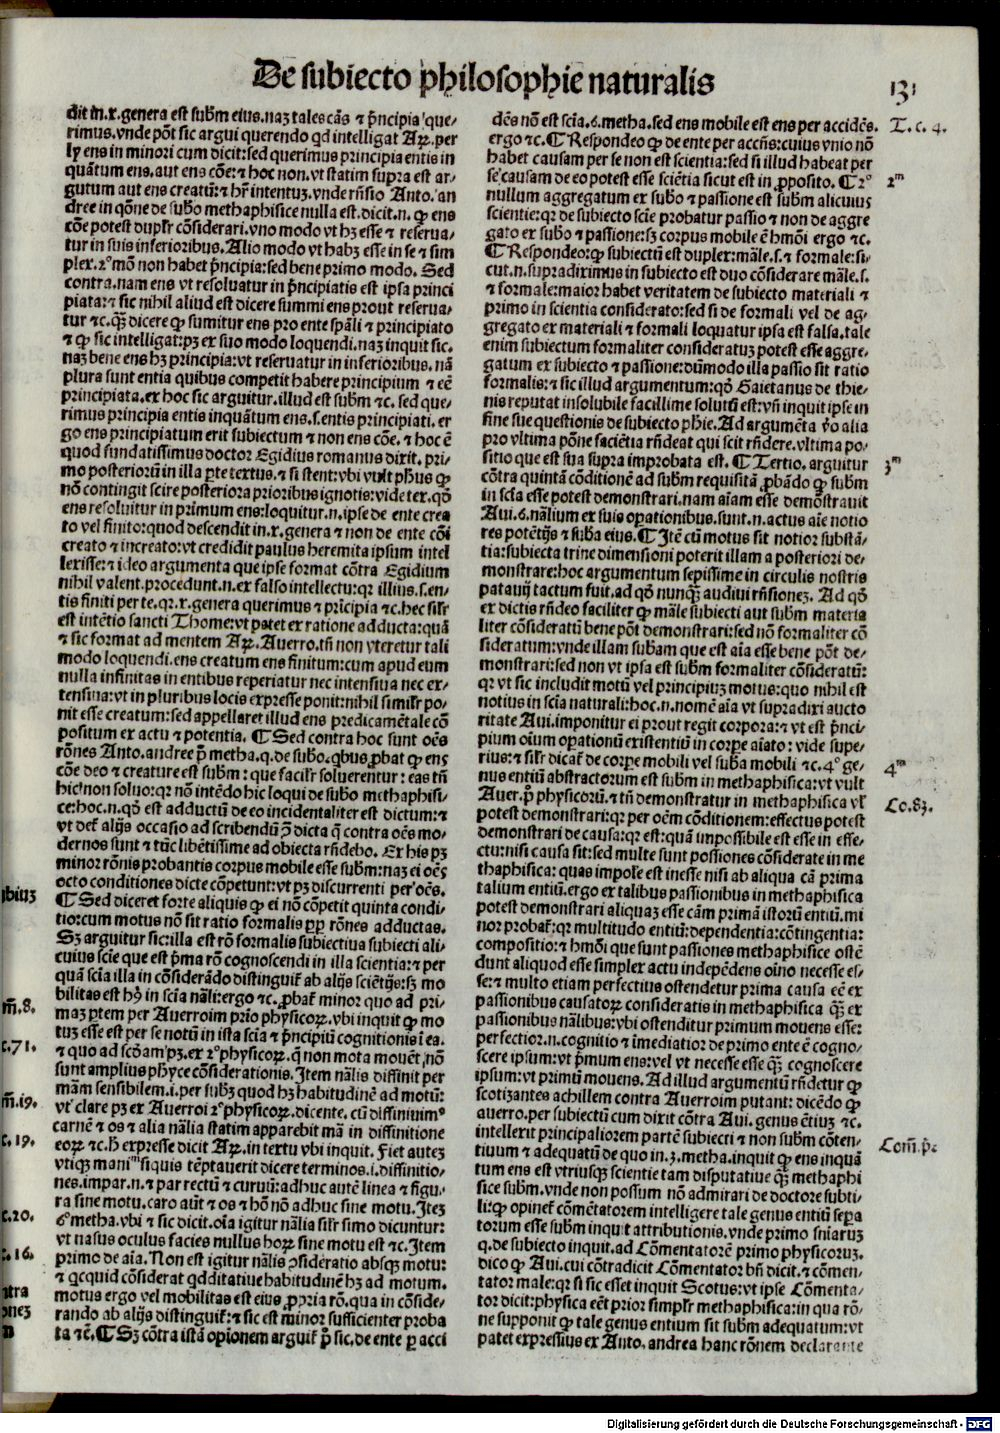 De subiecto philosophie naturalis
131
dit in.x.genera est subm eius.naz tales cãs ⁊ p̃ncipia que/
rimus.vnde põt sic argui querendo qd intelligat Aꝝ.per
ly ens in minori cum dicit:sed querimus principia entis in
quãtum ens.aut ens cõe:⁊ hoc non.vt statim supra est ar/
gutum aut ens creatũ:⁊ hr̃ intentuz.vnde rñsio Anto.an
dree in qõne de subo methaphisice nulla est.dicit.n.ꝙ ens
cõe potest duplr cõsiderari.vno modo vt hz esse ⁊ reserua/
tur in suis inferioribus.Alio modo vt habz esse in se ⁊ sim
plex.2°mõ non habet p̃ncipia:sed bene primo modo. Sed
contra.nam ens vt resoluatur in p̃ncipiatis est ipsa princi
piata:⁊ sic nihil aliud est dicere summi ens prout reserua/
tur ⁊c.qʒ dicere ꝙ sumitur ens pro ente spãli ⁊ principiato
⁊ ꝙ sic intelligat:pz ex suo modo loquendi.naz inquit sic.
naz bene ens hz principia:vt reseruatur in inferioribus.nã
plura sunt entia quibus competit habere principium ⁊ eẽ
principiata.ex hoc sic arguitur.illud est subm ⁊c. sed que/
rimus principia entis inquãtum ens.s.entis principiati.er
go ens principiatum erit subiectum ⁊ non ens cõe.⁊ hoc ẽ
quod fundatissimus doctor Egidius romanus dixit. pri/
mo posteriorũ in illa pte textus.⁊ si stent:vbi vult phus ꝙ
nõ contingit scire posteriora prioribus ignotis:vide tex.qõ
ens resoluitur in primum ens:loquitur.n.ipse de ente crea
to vel finito:quod descendit in.x.genera ⁊ non de ente cõi
creato ⁊ increato:vt credidit paulus heremita ipsum intel
lexisse:⁊ ideo argumenta que ipse format cõtra Egidium
nihil valent.procedunt.n.ex falso intellectu:qr illius.s.en/
tis finiti per te.qr.x.genera querimus ⁊ pricipia ⁊c.hec silr
est intẽtio sancti Thome:vt patet ex ratione adducta:quã
⁊ sic format ad mentem Aꝝ.Auerro.tñ non vteretur tali
modo loquendi.ens creatum ens finitum:cum apud eum
nulla infinitas in entibus reperiatur nec intensiua nec ex/
tensiua:vt in pluribus locis expresse ponit:nihil similr po/
nit esse creatum:sed appellaret illud ens predicamẽtale cõ
positum ex actu ⁊ potentia. ¶ Sed contra hoc sunt oẽs
rõnes Anto.andree p̃ metha.q.de subo.qbus ꝓbat ꝙ ens
cõe deo ⁊ creature est subm:que facilr soluerentur:eas tñ
hic non soluo:qr nõ intẽdo hic loqui de subo methaphisi/
ce:hoc.n.qõ est adductũ de eo incidentaliter est dictum:⁊
vt det alijs occasio ad scribendũ ꝯ dicta q̃ contra oẽs mo/
dernos sunt ⁊ tũc libẽtissime ad obiecta rñdebo. Ex his pz
minor rõnis probantis corpus mobile esse subm:naz ei oẽs
octo conditiones dicte cõpetunt:vt pz discurrenti per oẽs.
¶ Sed diceret forte aliquis ꝙ ei nõ cõpetit quinta condi/
tio:cum motus nõ sit ratio formalis ꝓp rõnes adductas.
Sz arguitur sic:illa est rõ formalis subiectiua subiecti ali/
cuius scie que est p̃ma rõ cognoscendi in illa scientia:⁊ per
quã scia illa in cõsiderãdo distinguit̃ ab alijs sciẽtijs:sz mo
bilitas est hʒ in scia nãli:ergo ⁊c.ꝓbat̃ minor quo ad pri/
maz ptem per Auerroim prio physicoꝝ.vbi inquit ꝙ mo
tuz esse est per se notũ in ista scia ⁊ p̃ncipiũ cognitionis i ea.
⁊ quo ad scdam pz.ex 2°physicoꝝ.q̃ non mota mouẽt nõ
sunt amplius phyce cõsiderationis.Item nãlis diffinit per
mãm sensibilem.i.per subz quod hz habitudinẽ ad motũ:
vt clare pz ex Auerroi 2°physicoꝝ.dicente.cũ diffiniuimꝰ
carnẽ ⁊ os ⁊ alia nãlia statim apparebit mã in diffinitione
eoꝝ ⁊c.h̃ expresse dicit Aꝝ.in textu vbi inquit. Fiet autez
vtiqʒ maniᵐ siquis tẽptauerit dicere terminos.i.diffinitio/
nes.impar.n.⁊ par rectũ ⁊ curuũ:adhuc autẽ linea ⁊ figu/
ra sine motu.caro aũt ⁊ os ⁊ hõ nõ adhuc sine motu.Itez
6°metha.vbi ⁊ sic dicit.oĩa igitur nãlia silr simo dicuntur:
vt nasus oculus facies nullus hoꝝ sine motu est ⁊c.Item
primo de aĩa.Non est igitur nãlis ꝯsideratio absqʒ motu:
⁊ qcquid cõsiderat qdditatiue habitudinẽ hz ad motum.
motus ergo vel mobilitas est eius ꝓpria rõ.qua in cõside/
rando ab alijs distinguit̃:⁊ sic est minor sufficienter proba
ta ⁊c̃.¶ Sz cõtra istã opionem arguit̃ p̃ sic.de ente p acci
dẽs nõ est scia.6.metha.sed ens mobile est ens per accidẽs.
ergo ⁊c.¶ Respondeo ꝙ de ente per accñs:cuius vnio nõ
habet causam per se non est scientia:sed si illud habeat per
se causam de eo potest esse sciẽtia sicut est in ꝓposito. ¶ 2°
nullum aggregatum ex subo ⁊ passione est subm alicuius
scientie:qr de subiecto scie probatur passio ⁊ non de aggre
gato ex subo ⁊ passione:sz corpus mobile ẽ hmõi ergo ⁊c.
¶ Respondeo:ꝙ subiectũ est duplex:mãle.s.⁊ formale:si/
cut.n.supradiximus in subiecto est duo cõsiderare mãle.s.
⁊ formale:maior habet veritatem de subiecto materiali ⁊
primo in scientia considerato:sed si de formali vel de ag/
gregato ex materiali ⁊ formali loquatur ipsa est falsa.tale
enim subiectum formaliter consideratuz potest esse aggre/
gatum ex subiecto ⁊ passione:dũmodo illa passio sit ratio
formalis:⁊ sic illud argumentum:qõ Gaietanus de thie/
nis reputat insolubile facillime solutũ est:vñ inquit ipse in
fine sue questionis de subiecto phie.Ad argumẽta ṽo alia
pro vltima põne saciẽtia rñdeat qui scit rñdere.vltima po/
sitio que est sua supra improbata est. ¶ Tertio. arguitur
cõtra quintã cõditionẽ ad subm requisitã ꝓbãdo ꝙ subm
in scia esse potest demonstrari.nam aĩam esse demõstrauit
Aui.6.nãlium ex suis opationibus.sunt.n.actus aĩe notio
res potẽtijs ⁊ suba eius.¶ Itẽ cũ motus sit notior substã/
tia:subiecta trine dimensioni poterit illam a posteriori de/
monstrare:hoc argumentum sepissime in circulis nostris
patauij tactum fuit.ad qõ nunqʒ audiui rñsionez. Ad qõ
ex dictis rñdeo faciliter ꝙ mãle subiecti aut subm materia
liter cõsideratũ bene põt demonstrari:sed nõ formaliter cõ
sideratum:vnde illam subam que est aĩa esse bene põt de/
monstrari:sed non vt ipsa est subm formaliter cõsideratũ:
qr vt sic includit motũ vel principiuz motus:quo nihil est
notius in scia naturali:hoc.n.nomẽ aĩa vt supradixi aucto
ritate Aui.imponitur ei prout regit corpora:⁊ vt est p̃nci/
pium oĩum opationũ existentiũ in corpe aĩato:vide supe/
rius:⁊ silr dicat̃ de corpe mobili vel suba mobili ⁊c.4°ge/
nus entiũ abstractorum est subm in methaphisica:vt vult
Auer.p̃ physicorũ.⁊ tñ demonstratur in methaphisica vl'
potest demonstrari:qr per oẽm cõditionem:effectus potest
demonstrari de causa:qr est:quã impossibile est esse in effe/
ctu:nisi causa sit:sed multe sunt possiones cõsiderate in me
thaphisica:quas impole est inesse nisi ab aliqua cã prima
talium entiũ.ergo ex talibus passionibus in methaphisica
potest demonstrari aliquaz esse cãm primã istorũ entiũ.mi
nor probat̃:qr multitudo entiũ:dependentia:cõtingentia:
compositio:⁊ hmõi que sunt passiones methaphisice ostẽ
dunt aliquod esse simplex actu indepẽdens oĩno necesse es/
se:⁊ multo etiam perfectius ostendetur prima causa eẽ ex
passionibus causatoꝝ consideratis in methaphisica qʒ ex
passionibus nãlibus:vbi ostenditur primum mouens esse:
perfectior.n.cognitio ⁊ imediatior de primo ente ẽ cogno/
scere ipsum:vt p̃mum ens:vel vt necesse esse qʒ cognoscere
ipsum:vt primũ mouens.Ad illud argumentũ rñdetur ꝙ
scotizantes achillem contra Auerroim putant: dicẽdo ꝙ
auerro.per subiectũ cum dixit cõtra Aui.genus ẽtiuz ⁊c.
intellexit principaliorem partẽ subiecti ⁊ non subm cõten/
tiuum ⁊ adequatũ de quo in.3.metha.inquit ꝙ ens inquã
tum ens est vtriusqʒ scientie tam disputatiue qʒ methaphi
sice subm.vnde non possum nõ admirari de doctore subti/
li:ꝙ opinet̃ cõmẽtatorem intelligere tale genus entiũ sepa
torum esse subm inquit attributionis.vnde primo sniaruz
q.de subiecto inquit.ad Cõmentatorẽ primo physicoruz.
dico ꝙ Aui.cui cõtradicit Cõmentator bñ dicit.⁊ cõmen/
tator male:qr si sic esset inquit Scotus:vt ipse Cõmenta/
tor dicit:physica eẽt prior simplr methaphisica:in qua rõ/
ne supponit ꝙ tale genus entium sit subm adequatum:vt
patet expressius ex Anto.andrea hanc rõnem declarante
T.c.4.
2ᵐ
3ᵐ
4ᵐ
Co.83.
Com̃.p̃c
jbiuz
m̃.8.
c.71.
m̃.19.
c.19.
c.20.
c.16.
ntra
onez